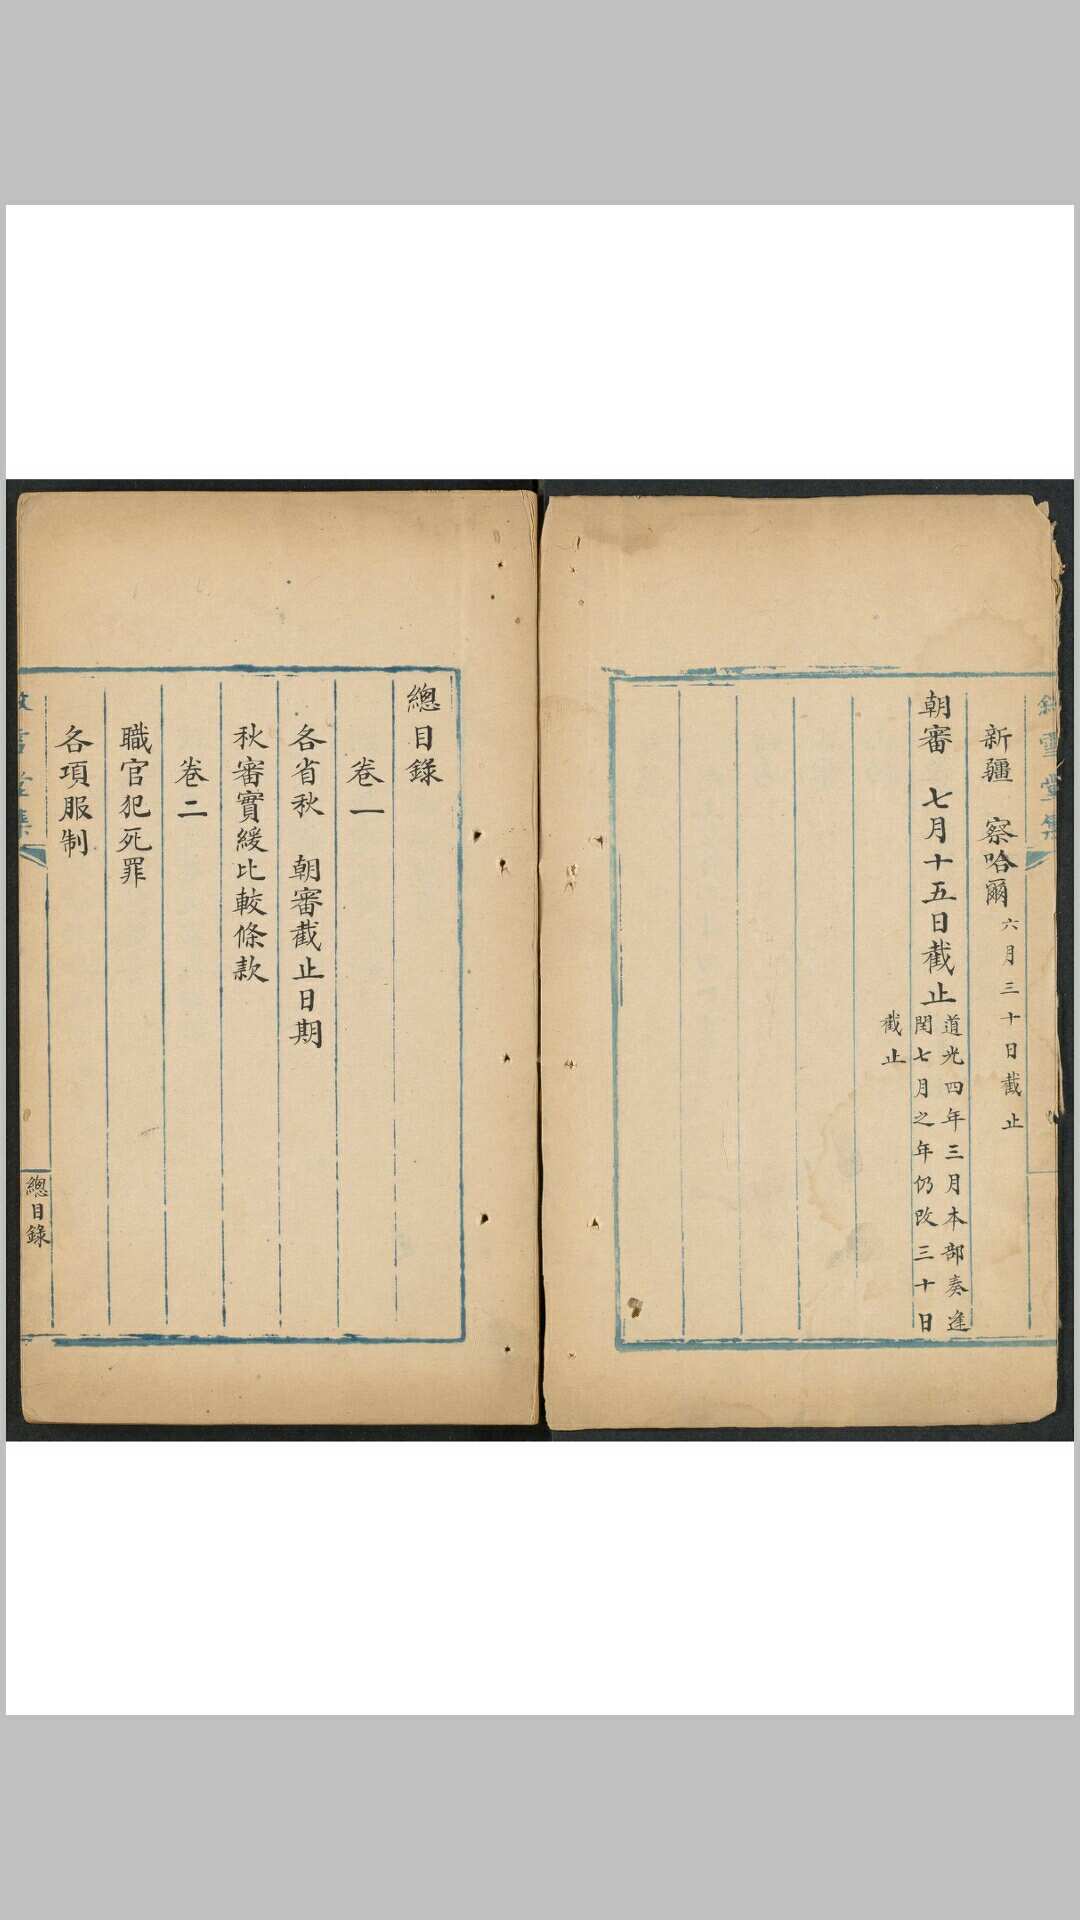 新疆　察哈爾六月三十日截止
朝審　七月十五日截止道光四年三月本部奏逢
閏七月之年仍改三十日
截止
總目錄
卷一
各省秋　朝審截止日期
秋審實緩比較條款
卷二
職官犯死罪
各項服制
總目錄